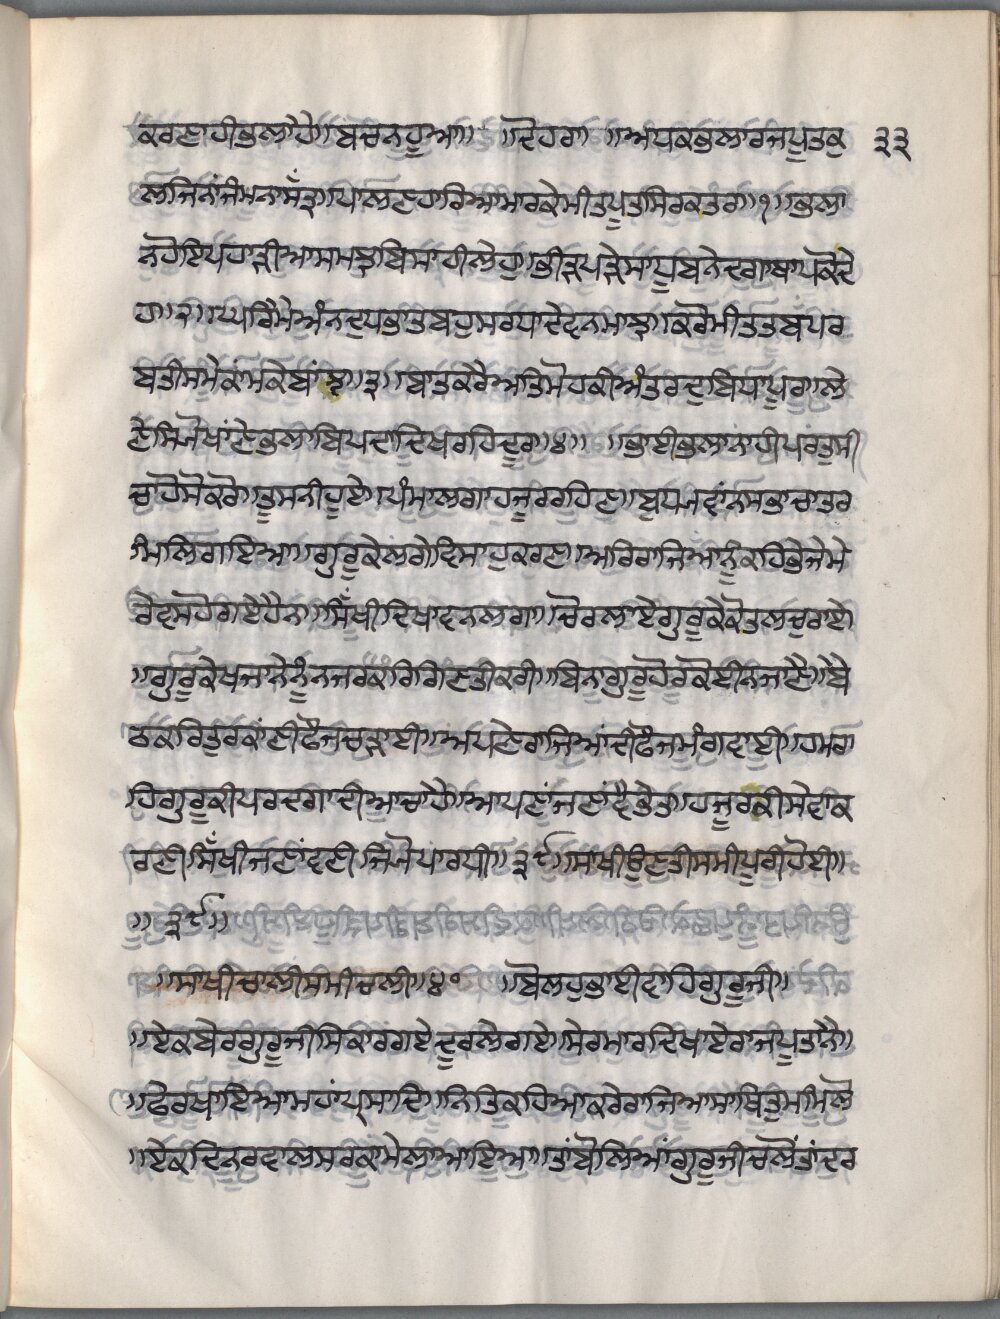 ਕਰਣਾਹੀਭਲਾਹੈ॥ਬਚਨਹੂਆ॥ ॥ਦੋਹਰਾ ॥ਅਧਕਭਲਾਰਜਪੂਤਕੁ ੩੩
ਲਜਿਨਾਂਜੰਮਨਾਸੰਝ॥ਪਾਲਣਹਰਿਆਮਾਰਕੇਮੀਤਪੂਤਸਿਰਕਤੰਰਾ॥੧॥ਭਲਾ
ਨਹੋਇਪਹਾੜੀਆਸਮਝਬਿਸਾਹੀਲੇਹੁ॥ਭੀੜਪੜੇਸਾਧੂਬਨੇਦਗਾਬਾਪਕੋਦੇ
ਹਾ॥੨॥ਘਰਿਮੈਅੰਨਦਪਭਾਤਬਹੁਸਰਪਾਦੇਵਨਮਾਝ॥ਕਰੋਮੀਤਤਬਪਰ
ਬਤੀਸਮੈਕਾਂਮਕਿਬਾਂਝ॥੩॥ਬਾਤਕਰੈਅਤਿਮੋਹਕੀਅੰਤਰਦੁਬਿਧਾਪੂਰਾ॥ਲੇ
ਣੇਸਿਜੋਖਾਂਣੇਭਲਾਬਿਪਦਾਦਿਖਰਹਿਦੂਰ॥੪॥ ॥ਭਾਈਭਲਾਨਾਹੀਪਰਤੁਸੀ
ਚਾਹੋਸੋਕਰੋ॥ਤੁਸਨੀਹੁਏ॥ਪੰਮਾਲਗਾਹਜੂਰਰਹਿਣ॥ਬੁਧਜਵਾਂਨਸਭਾਚਾਤਰ
ਮਿਲਿਗਇਆ॥ਗੁਰੂਕੇਲਗੇਵਿਸਾਹੁਕਰਣ॥ਅਰਿਰਾਜਿਆਨੂੰਕਹਿਭੇਜੇਮੇ
ਰੇਵਸਹੋਗਏਹੈਨ॥ਸਿੱਖੀਦਿਖਾਵਨਲਗਾ॥ਚੋਰਲਾਏਗੁਰੂਕੇਕੋਤਲਚੁਰਾਏ
॥ਗੁਰੂਕੇਖਜਾਨੇਨੂੰਨਜਰਕਰਿਗਿਣਤੀਕਰੀ॥ਬਿਨਾਗੁਰਹੋਰੁਕੋਈਨਜਾਣੈ॥ਬੈ
ਠਕਰਿਤੁਰਕਾਂਣੀਫੌਜਚੜਾਈ॥ਅਪਣੇਰਾਜਿਆਂਦੀਫੌਜਮੰਗਵਾਈ॥ਹਮਰਾ
ਹਿਗੁਰੂਕੀਪਰਦਗਾਦੀਆਚਾਹੈ॥ਆਪਣਾਂਜਣਾਂਦੈਭੇਤ॥ਹਜੂਰਕੀਸੇਵਾਕ
ਰਣੀਸਿੱਖੀਜਣਾਂਵਣੀਜਿਜੋਪਾਰਧੀ॥੩੯॥ਸਾਖੀਉਣਤੀਸਮੀਪੂਰੀਹੋਈ॥
॥੩੯॥
॥ਸਾਖੀਚਾਲੀਸਮੀਚਲੀ॥੪੦ ॥ਬੋਲਹੁਭਾਈਵਾਹਿਗੁਰੂਜੀ॥
॥ਏਕਬੇਰਗੁਰੂਜੀਸਿਕਾਰਗਏਦੂਰਲੇਗਏ॥ਸੇਰਮਾਰਦਿਖਾਏਰਾਜਪੂਤਨੈ॥
॥ਫੇਰਖਾਇਆਮਹਾਂਪ੍ਰਸਾਦਿ॥ਨਿਤਿਕਹਿਆਕਰੇਰਾਜਿਆਸਾਥਿਤੁਸੀਮਿਲੋ
॥ਏਕਦਿਨਰਵਾਲਸਰਕਾਮੇਲਾਆਇਆ॥ਤਾਂਬੋਲਿਆਂਗੁਰੂਜੀਚਲੋਂਤਾਂਦਰ